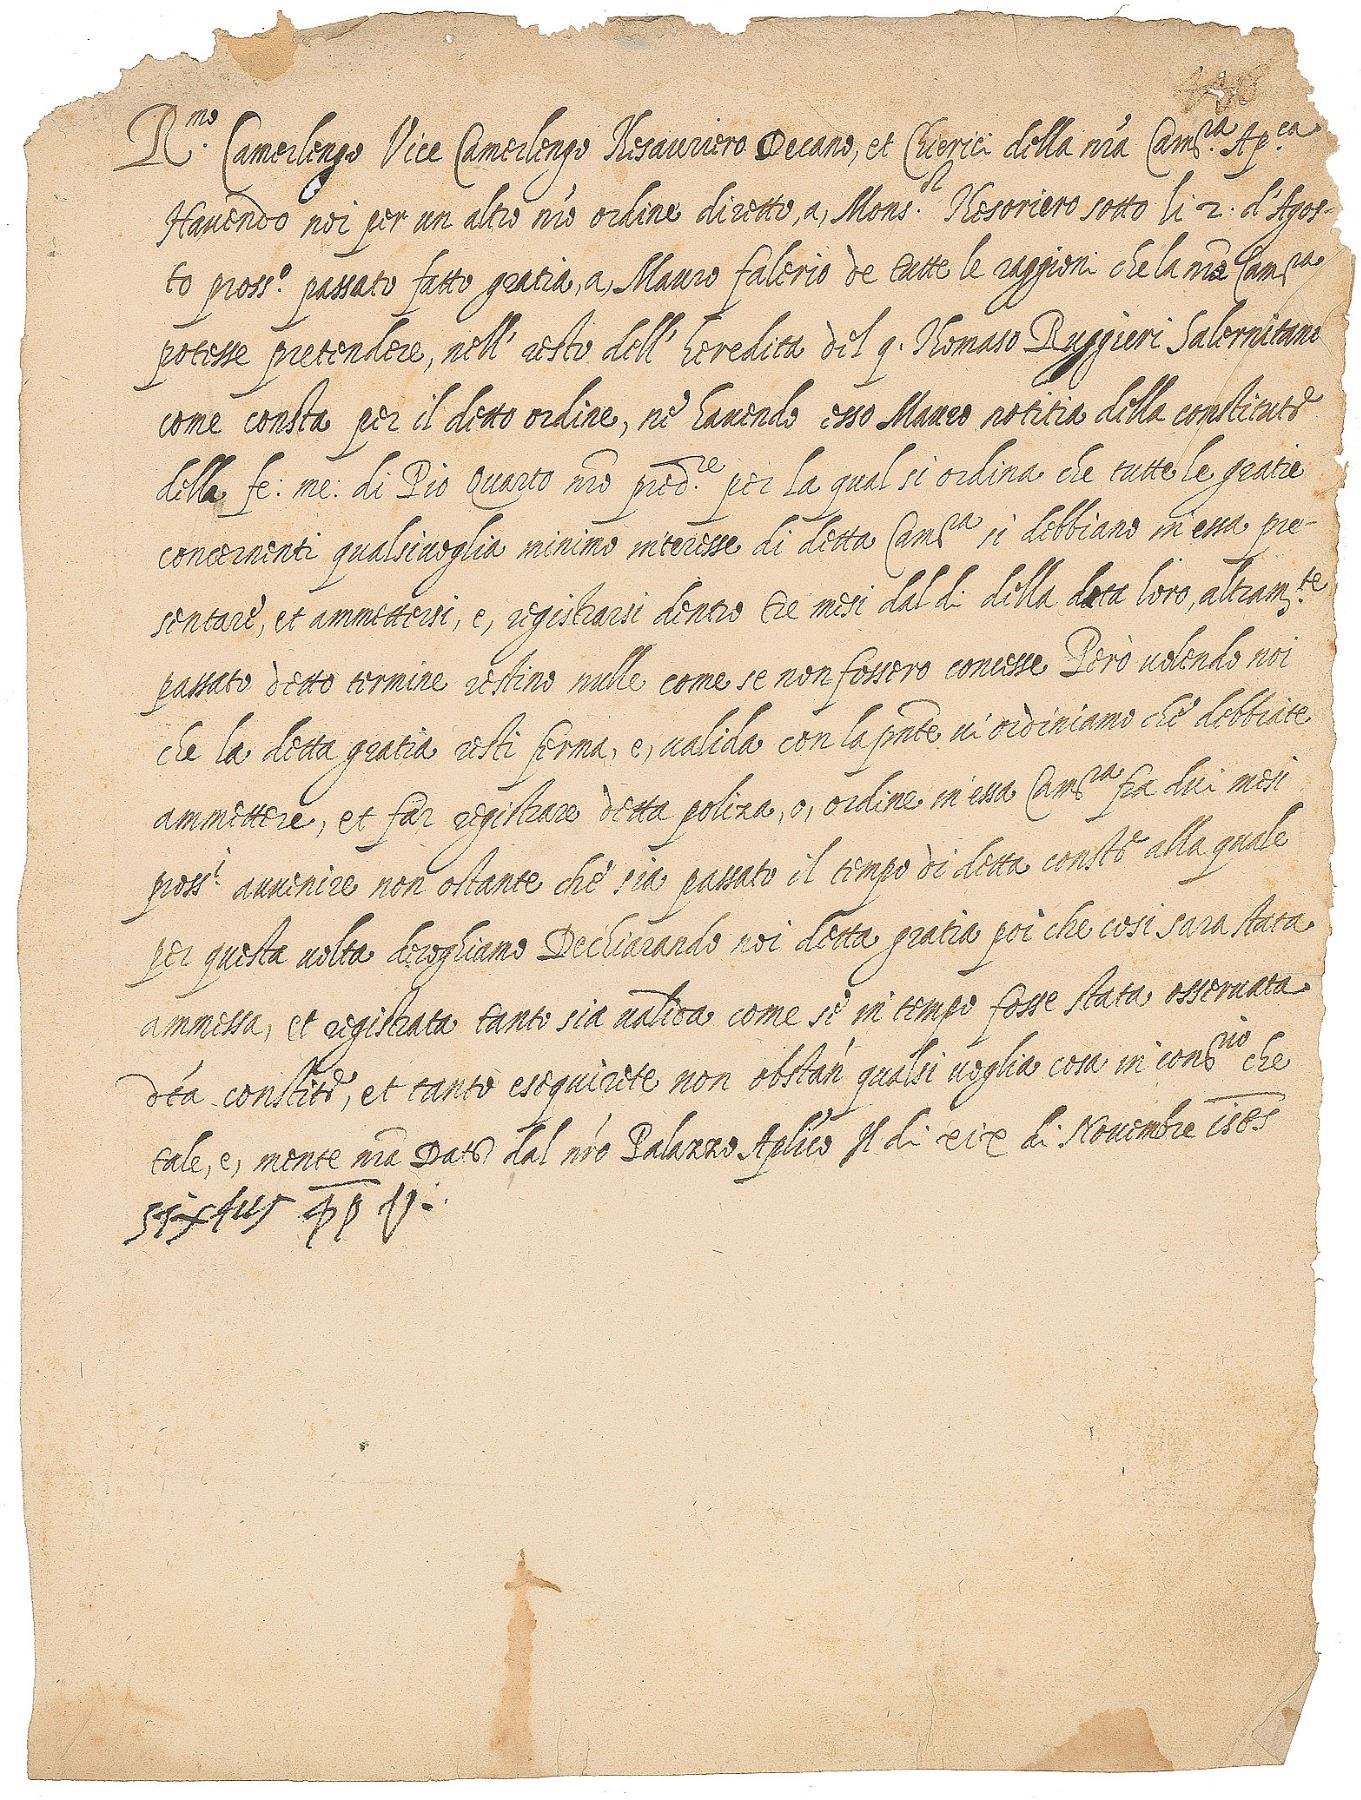 R.mo Camerlengo Vice Camerlengo Thesauriero Decano, et Chierici della nra Camra. Ap.ca
Havendo noi per un altro nro ordine diretto, a, Mons.r Thesoriero sotto li 2. d'Agos-
to pross.o passato fatto gratia, a, Mauro falerio de tutte le raggioni che la nra Camra
potesse pretendere, nell' resto dell' heredita del q. Thomaso Ruggieri Salernitano
come consta per il detto ordine, ne havendo esso Mauro notitia della constitute
della fe: me: di Pio Quarto nro pred.re per la qual si ordina che tutte le gratie
concernenti qualsivoglia minimo interesse di detta Camra si debbiano in essa pre-
sentare, et ammettersi, e, registrarsi dentro tre mesi dal di della data loro, altram.te
passato detto termine restino nulle come se non fossero concesse Però volendo noi
che la detta gratia resti ferma, e, valida con la pnte vi ordiniamo che debbiate
ammettere, et far registrare detta poliza, o, ordine in essa Camra fra dui mesi
pross.i avvenire non ostante che sia passato il tempo di detta conste alla quale
per questa volta deroghiamo Dechiarando noi detta gratia poi che cosi sara stata
ammessa, et registrata tanto sia valida come se in tempo fosse stata osservata
dta constite, et tanto esequirete non obstan qualsi voglia cosa in conrio che
tale, e, mente nra Dato dal nro Palazzo Aplico Il di xix di Novembre 1585
Sixtus pp V.